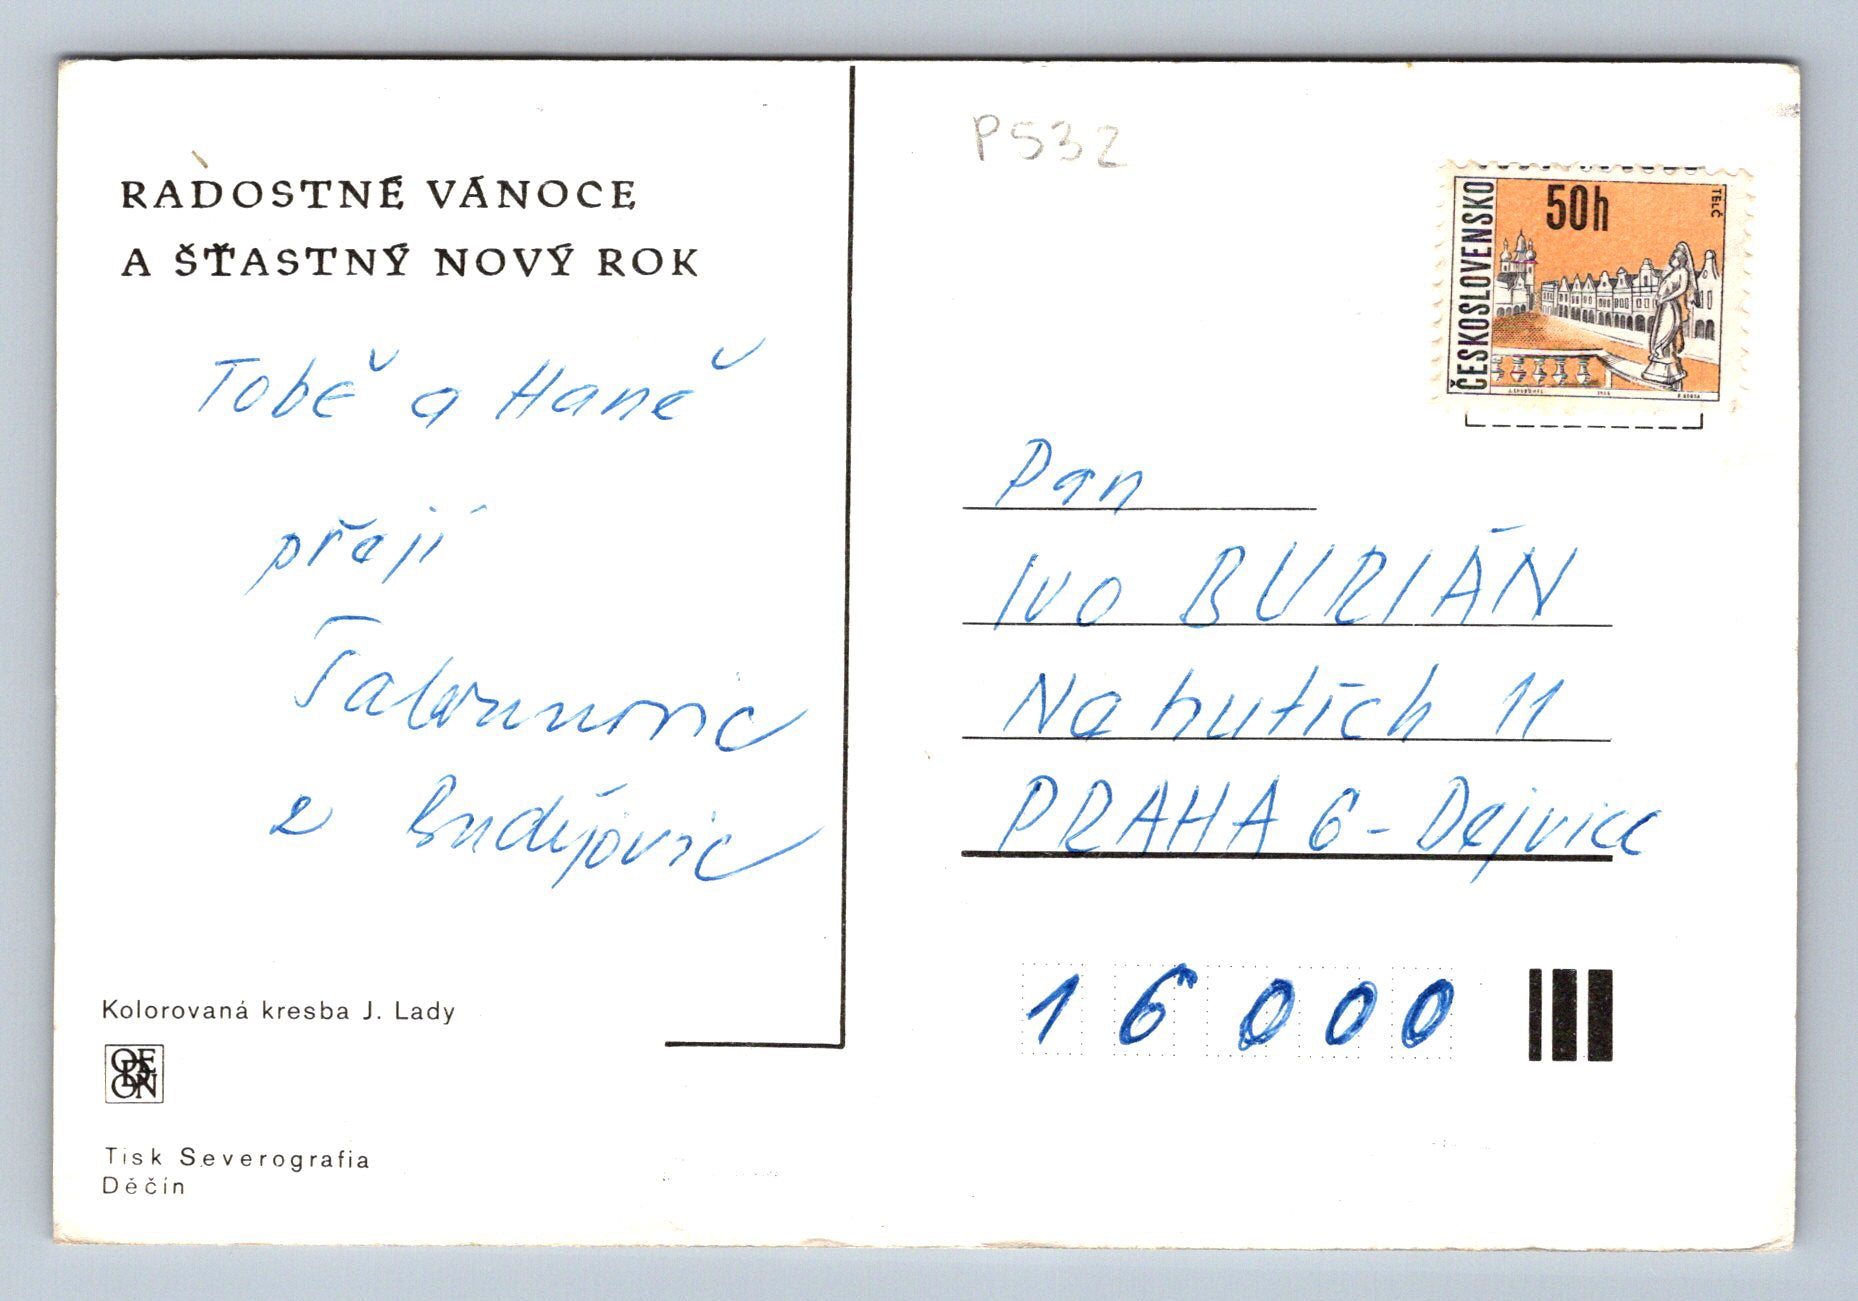 RADOSTNÉ VÁNOCE
A ŠŤASTNÝ NOVÝ ROK
Tobě a Haně
přejí
z Budějovic
Kolorovaná kresba J. Lady
ODEON
Tisk Severografia
Děčín
P532
ČESKOSLOVENSKO
50h
TELČ
Pan
Ivo BURIÁN
Na hutích 11
PRAHA 6 - Dejvice
16000